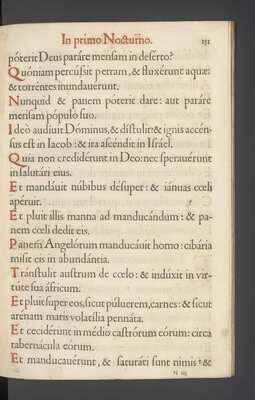 In primo Nocturno. 151
póterit Deus paráre mensam in desérto?
Quóniam percússit petram, & fluxérunt aquæ:
& torréntes inundavérunt.
Nunquid & panem póterit dare: aut paráre
mensam pópulo suo.
Ideò audiuit Dóminus, & distulit: & ignis accén-
sus est in Iacob: & ira ascéndit in Israel.
Quia non credidérunt in Deo: nec sperauérunt
in salutári eius.
Et mandáuit núbibus désuper: & iánuas cœli
apéruit.
Et pluit illis manna ad manducándum: & pa-
nem cœli dedit eis.
Panem Angelórum manducáuit homo: cibária
misit eis in abundántia.
Tránstulit austrum de cœlo: & indúxit in vir-
túte sua áfricum.
Et pluit super eos, sicut púluerem, carnes: & sicut
arénam maris volatília pennáta.
Et cecidérunt in médio castrórum eórum: circa
tabernácula eórum.
Et manducauérunt, & saturáti sunt nimis: &
N iiij